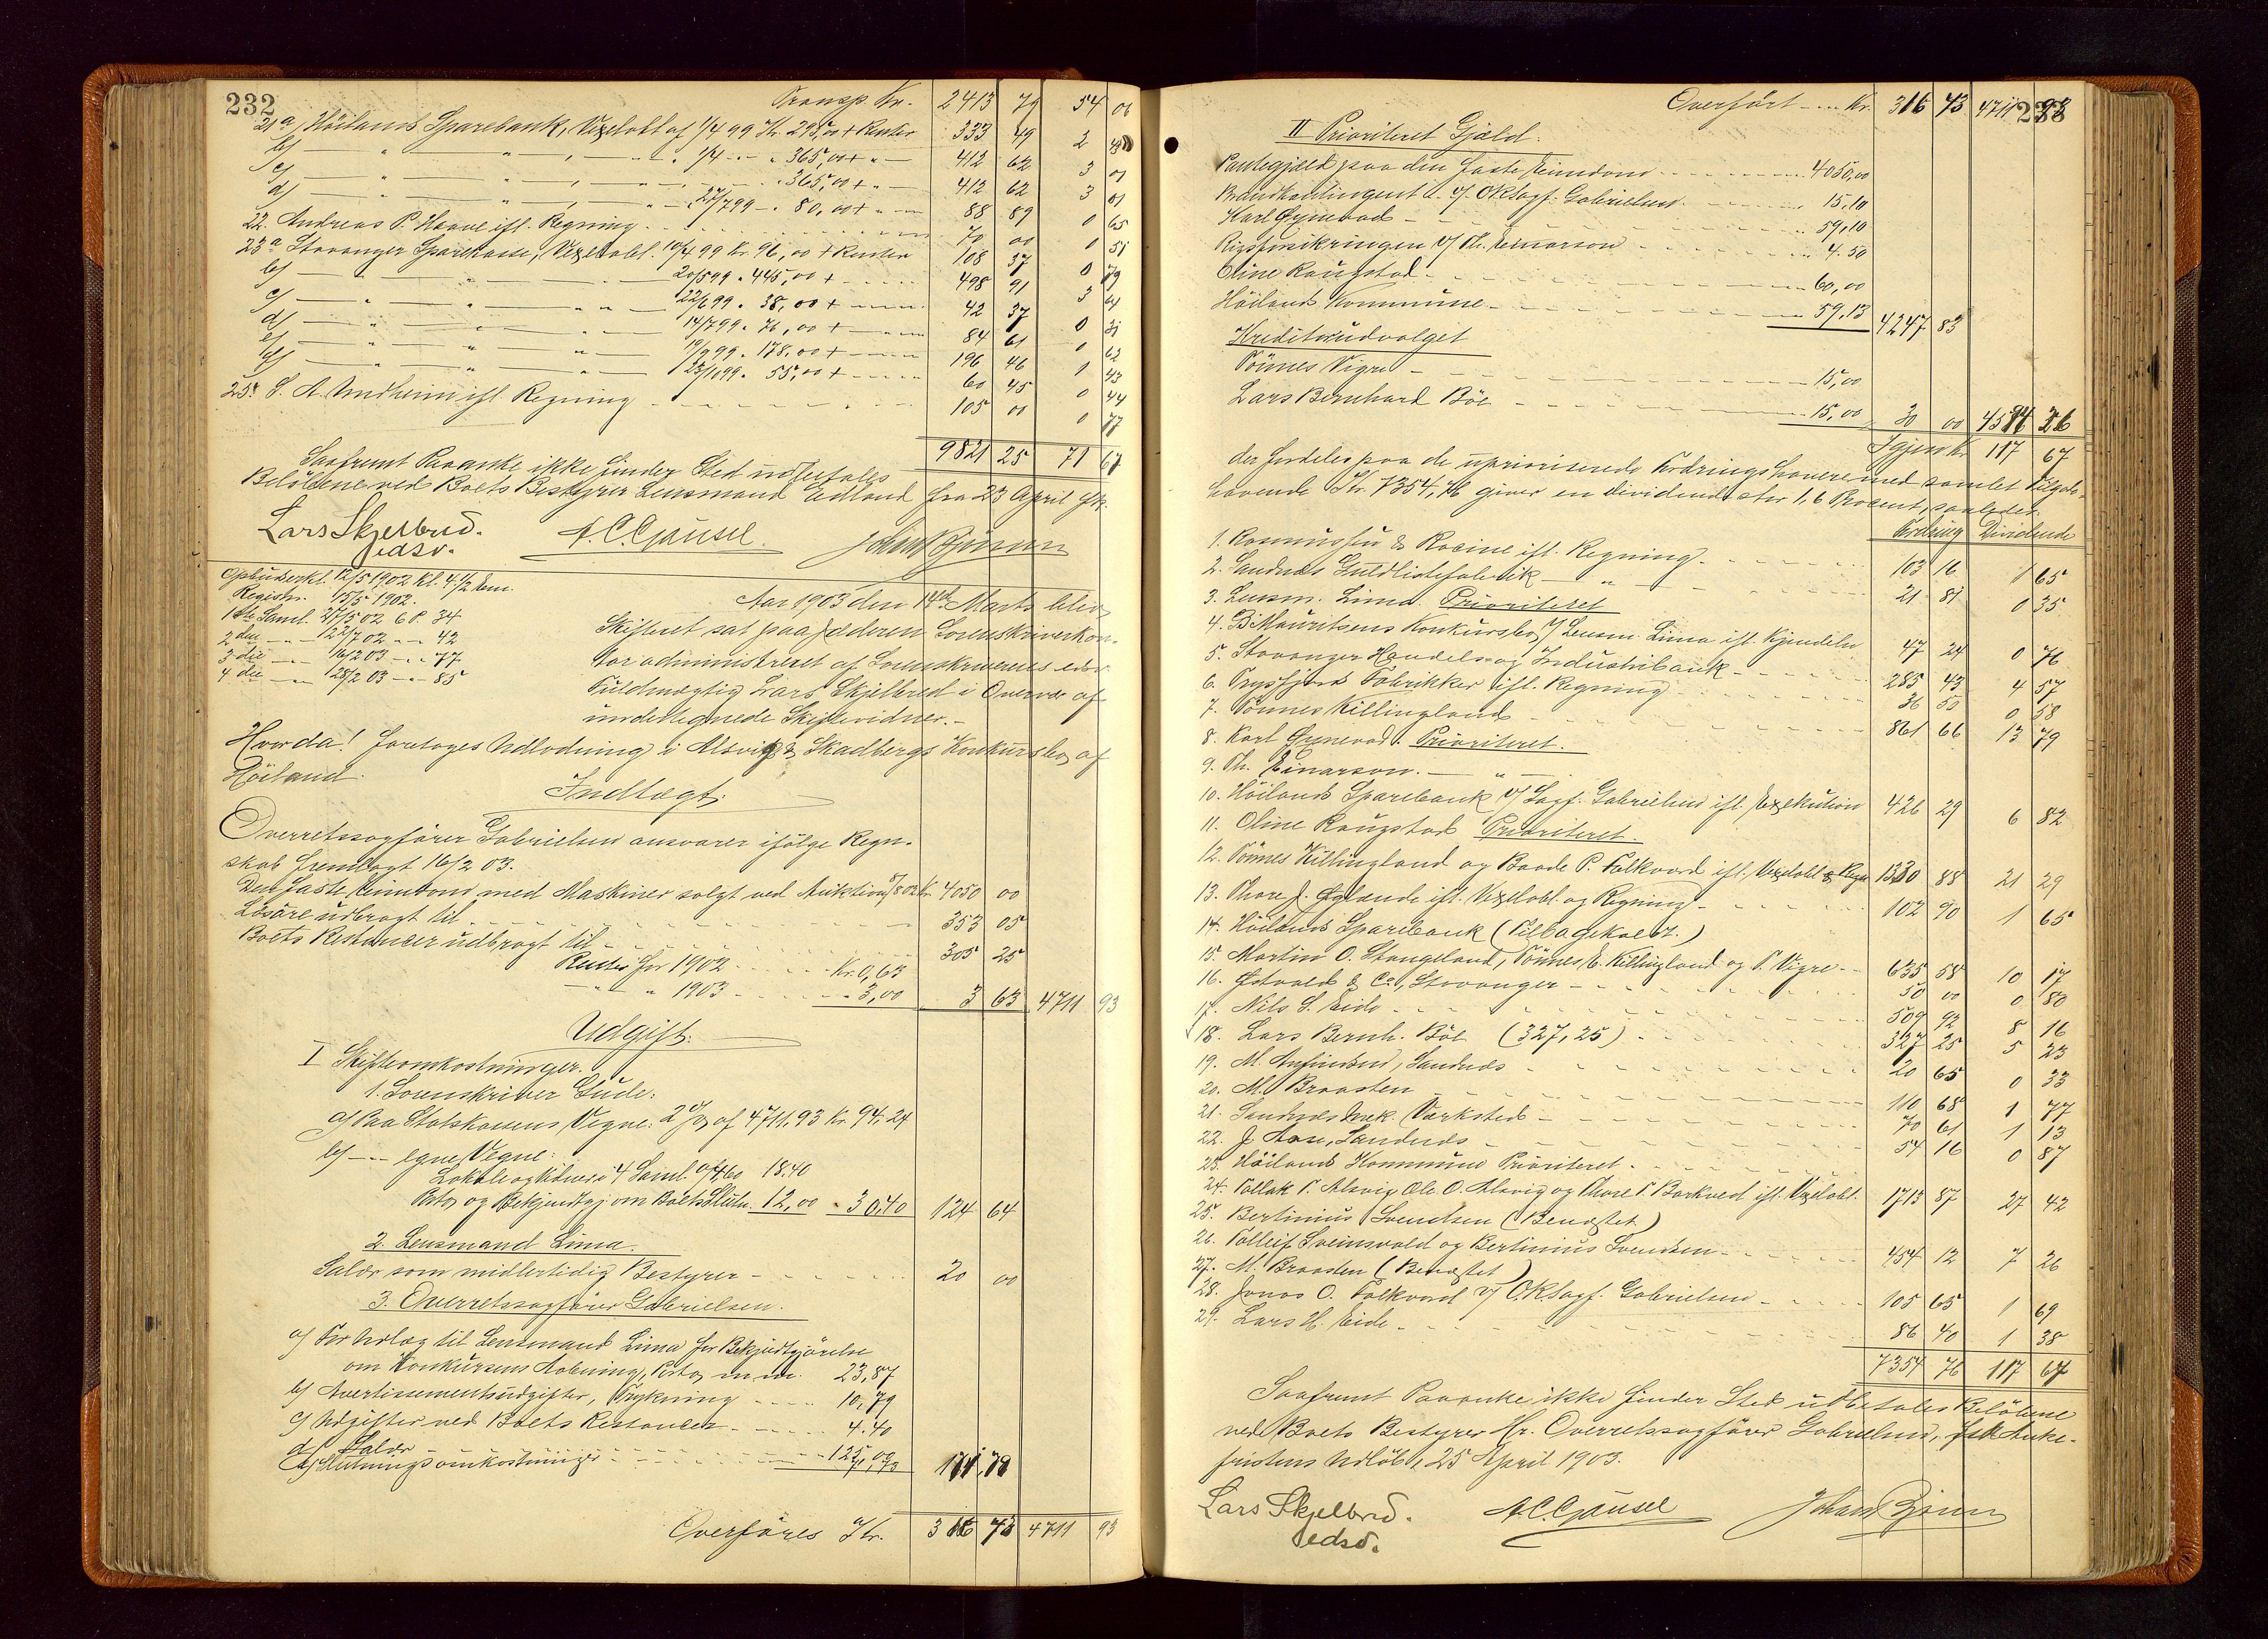 232
Transp. Kr. 2413 79 54 06
21 a/ Höilands Sparebank, Vexelobl af 1/4 99 Kr. 295,00 + Renter 333 49 2
b/ — " — " — , — " — " 1/4 - " - " 365,00 + " — 412 62 3 01
c/ — " — " — , — " — " 365,00 + " — 412 62 3 01
d/ — " — " — , — " — 27/7 99 - " 80,00 + " — 88 89 0 65
22. Andreas P. Haave ifl. Regning 70 00 0 51
23 a Stavanger Sparekasse, Vexelobl. 10/4 99 Kr. 96,00 + Renter 108 37 0 79
b/ — " — " — 20/5 99 " 445,00 + — 498 91 3 64
c/ — " — " — 22/6 99 " 38,00 + — 42 37 0 31
d/ — " — " — 14/7 99 " 76,00 + — 84 61 0 62
e/ — " — " — 19/9 99 " 178,00 + — 196 46 1 43
f/ — " — " — 23/11 99 " 55,00 + — 60 45 0 44
25. S. A. Undheim ifl. Regning 105 01 0 77
9821 25 71 67
Saafremt Paaanke ikke finder Sted udbetales
Belöbene ved Boets Bestyrer Lensmand Edland fra 23 April fk.
Lars Skjelbred. A. C. Gausel. Johan
edsv.
Opbudserkl. 12/5 1902 Kl. 4 1/2 Em.
Registr. 15/5 1902.
1ste Saml. 27/5 02 6 P. 34
2den — " — 122/7 02 — " — 42
3die — " — 16/2 03 — " — 77
4de — " — 28/2 03 — " — 85
Aar 1903 den 14de Marts blev
Skifteret sat paa Jæderen Sorenskriverkon-
tor administreret af Sorenskriverens edsv.
Fuldmægtig Lars Skjelbred i Overvær af
undertegnede Skiftevidner. —
Hvorda! foretoges Udlodning i Alsvig & Skadbergs Konkursbo af
Höiland.
Indtægt.
Overretssagförer Gabrielsen ansvarer ifölge Regn-
skab fremlagt 16/2 03.
Den faste Eiendom med Maskiner solgt ved Auktion 5/8 02 Kr. 4050 00
Lösöre udbragt til 353 05
Boets Restancer udbragt til 305 25
Renter for 1902 Kr. 0,63
— " — " 1903 " 3,00 3 63 4711 93
Udgift.
I Skifteomkostninger.
1. Sorenskriver Gude:
a/ Paa Statskassens Vegne: 2 % af 4711,93 Kr. 94,24
b/ — " — egne Vegne:
Lokale og Vidner i 4 Saml. a/ 4,60 18.40
Porto og Bekjendtgj. om Boets Slutn. 12,00 " 30,40 124 64
2. Lensmand Lima.
Salær som midlertidig Bestyrer 20 00
3. Overretssagförer Gabrielsen.
a/ For Udlæg til Lensmand Lima for Bekjendtgjörelse
om Konkursens Aabning, Porto m. m. 23,87
b/ Avertissementsudgifter, Trykning 10,79
c/ Udgifter ved Boets Restancer 4.40
d/ Salær 125,00
e/ Slutningsomkostninger
Overföres Kr. 316 73 4711 93
Overfört Kr. 316 73 4711 93
II Prioriteret Gjæld.
Pantegjæld paa den faste Eiendom 4050,00
Brandkontingent d. v/ ORSagf. Gabrielsen 15,10
Karl Gynevad 59,10
Rigsforsikringen v/ Th. Einarson 4.50
Oline Raugstad 60,00
Höilands Kommune 59,13 4247 83
Kreditorudvalget
Tönnes Vigre 15,00
Lars Bernhard Böe 15,00 30 00 4594 26
Igjen Kr. 117 67
der fordeles paa de uprioriterede Fordringshavere med samlet Tilgode-
havende Kr. 7354,76 giver en Dividende stor 1,6 Procent, saaledes:
Fordring Dividende
1. Rasmussen & Racine ifl. Regning 103 16 1 65
2. Sandnæs Guldlistefabrik — " — 21 81 0 35
3. Lensm. Lima. Prioriteret
4. B. Mauritsens Konkursbo v/ Lensm. Lima ifl. Kjendelse 47 24 0 76
5. Stavanger Handels- og Industribank 285 43 4 57
6. Trysfjord Fabrikker ifl. Regning 36 50 0 58
7. Tönnes Killingland 861 66 13 79
8. Karl Gynevad: Prioriteret.
9. Th. Einarson. — " —
10. Höilands Sparebank v/ Sagf. Gabrielsen ifl. Exekution 426 29 6 82
11. Oline Raugstad Prioriteret.
12. Tönnes Killingland og Baade P. Folkvord ifl. Vexelobl & Regn 1330 88 21 29
13. Thore J. Öglænde ifl. Vexelobl. og Regning 102 90 1 65
14. Höilands Sparebank (Tilbagekaldt.)
15. Martin O. Stangeland, Tönnes E. Killingland og T. Vigre 635 58 10 17
16. Östvold & Co, Stavanger 50 00 0 80
17. Nils S. Eide 509 92 8 16
18. Lars Bernh. Böe (327,25) 327 25 5 23
19. M. Anfindsen, Sandnæs 20 65 0 33
20. M. Braasten 110 68 1 77
21. Sandnæs mek. Værksted 70 61 1 13
22. J. Aase, Sandnæs 54 16 0 87
23. Höilands Kommune Prioriteret
24. Tollak T. Alsvig, Ole O. Alsvig og Thore T. Barkved ifl. Vexelobl. 1713 87 27 42
25. Bertinius Svendsen (Benægtet)
26. Tolleif Sveinsvold og Bertinius Svendsen 454 12 7 26
27. M. Braasten (Benægtet)
28. Jonas O. Folkvord v/ O.R.Sagf. Gabrielsen 105 65 1 69
29. Lars H. Eide 86 40 1 38
7354 76 117 67
Saafremt Paaanke ikke finder Sted udbetales Belöbene
ved Boets Bestyrer Hr. Overretssagförer Gabrielsen, fra Anke-
fristens Udlöb, 25 April 1903.
Lars Skjelbred. A. C. Gausel Johan
edsv.